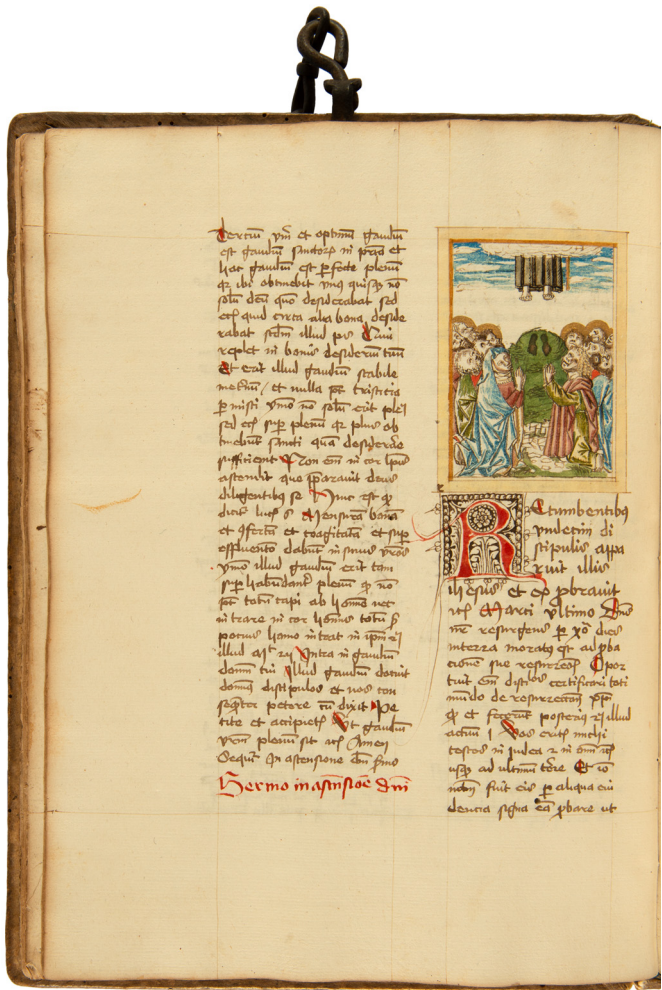 Terciū ... et optimū gaudiū
est gaudiū sanctorū in ... et
hoc gaudiū est pfecte plenū
qr ibi obtinebit vnus quisqz nō
solū deū quē desiderabat sed
ecī quid circa alia bona deside
rabat scdm illud ps Qui
replet in bonis desideriū tuū
Et erit illud gaudiū stabile
... et nulla pt tristicia
pmisti ymo nō solū erit ple
sed ecī sup plenū qr plus ob
tinebūt sancti quā desiderare
sufficiunt Non em in cor hoīs
ascendit que pparauit deus
diligentibus se Hinc est qd
dicit luce 6 Mensurā bonā
et ꝯfertā et coagitatā et sup
effluentē dabūt in sinus vros
ymo illud gaudiū erit tam
suphabundant plenū qd nō
pt totū capi ab homīe nec
intrare in cor homīs totū s
pocius homo intrat in ipm
illud ... Intra in gaudiū
domī tui Illud gaudiū docuit
domīs discipulos et nos con
seqter petere cū dixit Pe
tite et accipietis Vt gaudiū
vrm plenū sit ... Amen
Sequitr In ascensione dm smo
Sermo in ascensiōe dni
Recumbentibus
vndecim di
scipulis appa
ruit illis
ihesus et exprobrauit
... Marci vltimo Dns
nr resurgens p xlᵃ dies
in terra moratus est ad pba
cionē sue resurreōis Opor
tuit em discīos certificari toti
mūdo de resurrectōne xpi
qd et fecerūt posterius illud
actuū 1 Vos eritis michi
testes in judea z in omī ...
usqz ad vltimū tre Et iō
... fuit eis p aliqua eui
dencia signa eā pbare ut